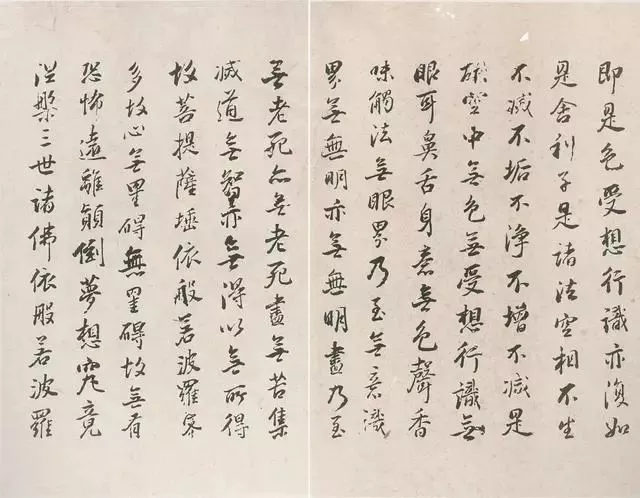 即是色受想行識亦復如
是舍利子是諸法空相不生
不滅不垢不淨不增不減是
故空中無色無受想行識無
眼耳鼻舌身意無色聲香
味觸法無眼界乃至無意識
界無無明亦無無明盡乃至
無老死亦無老死盡無苦集
滅道無智亦無得以無所得
故菩提薩埵依般若波羅蜜
多故心無罣碍無罣碍故無有
恐怖遠離顛倒夢想究竟
涅槃三世諸佛依般若波羅